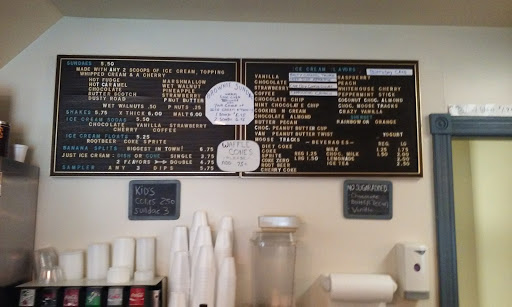 SUNDAES 5.50
MADE WITH ANY 2 SCOOPS OF ICE CREAM, TOPPING
WHIPPED CREAM & A CHERRY
HOT FUDGE
HOT CARAMEL
CHOCOLATE
BUTTER SCOTCH
DUSTY ROAD
MARSHMALLOW
WET WALNUT
PINEAPPLE
STRAWBERRY
P'NUT BUTTER
WET WALNUTS .50 P NUTS .25
SHAKES 5.75 X THICK 6.00 MALT 6.00
ICE CREAM SODAS 5.50
CHOCOLATE VANILLA STRAWBERRY
CHERRY COFFEE
ICE CREAM FLOATS 5.25
ROOTBEER COKE SPRITE
BANANA SPLITS BIGGEST IN TOWN! 6.75
JUST ICE CREAM - DISH OR CONE - SINGLE 2.75
2 FLAVORS DOUBLE 4.75
SAMPLER ANY 3 DIPS 5.75
BROWNIE SUNDAE
WAFFLE
CONES
ICE CREAM FLAVORS
VANILLA
CHOCOLATE
STRAWBERRY
COFFEE
CHOCOLATE CHIP
MINT CHOCOLATE CHIP
COOKIES N CREAM
CHOCOLATE ALMOND
BUTTER PECAN
CHOC. PEANUT BUTTER CUP
VAN. PEANUT BUTTER TWST
MOOSE TRACKS
RASPBERRY
PEACH
WHITEHOUSE CHERRY
PEPPERMINT STICK
COCONUT CHOC. ALMOND
CHOC. MOOSE TRACKS
CRAZY VANILLA
SHERBET
RAINBOW OR ORANGE
YOGURT
BEVERAGES
DIET COKE
COKE
SPRITE
COKE ZERO
ROOT BEER
CHERRY COKE
MILK
CHOC. MILK
LEMONADE
ICE TEA
KIDS
Cones 2.50
Sundae 3
NO SUGAR ADDED